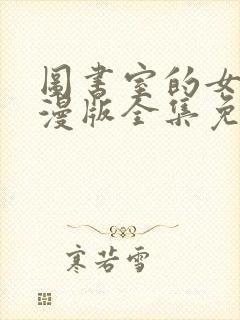 圖書室的女
漫版全集免
寒若雪